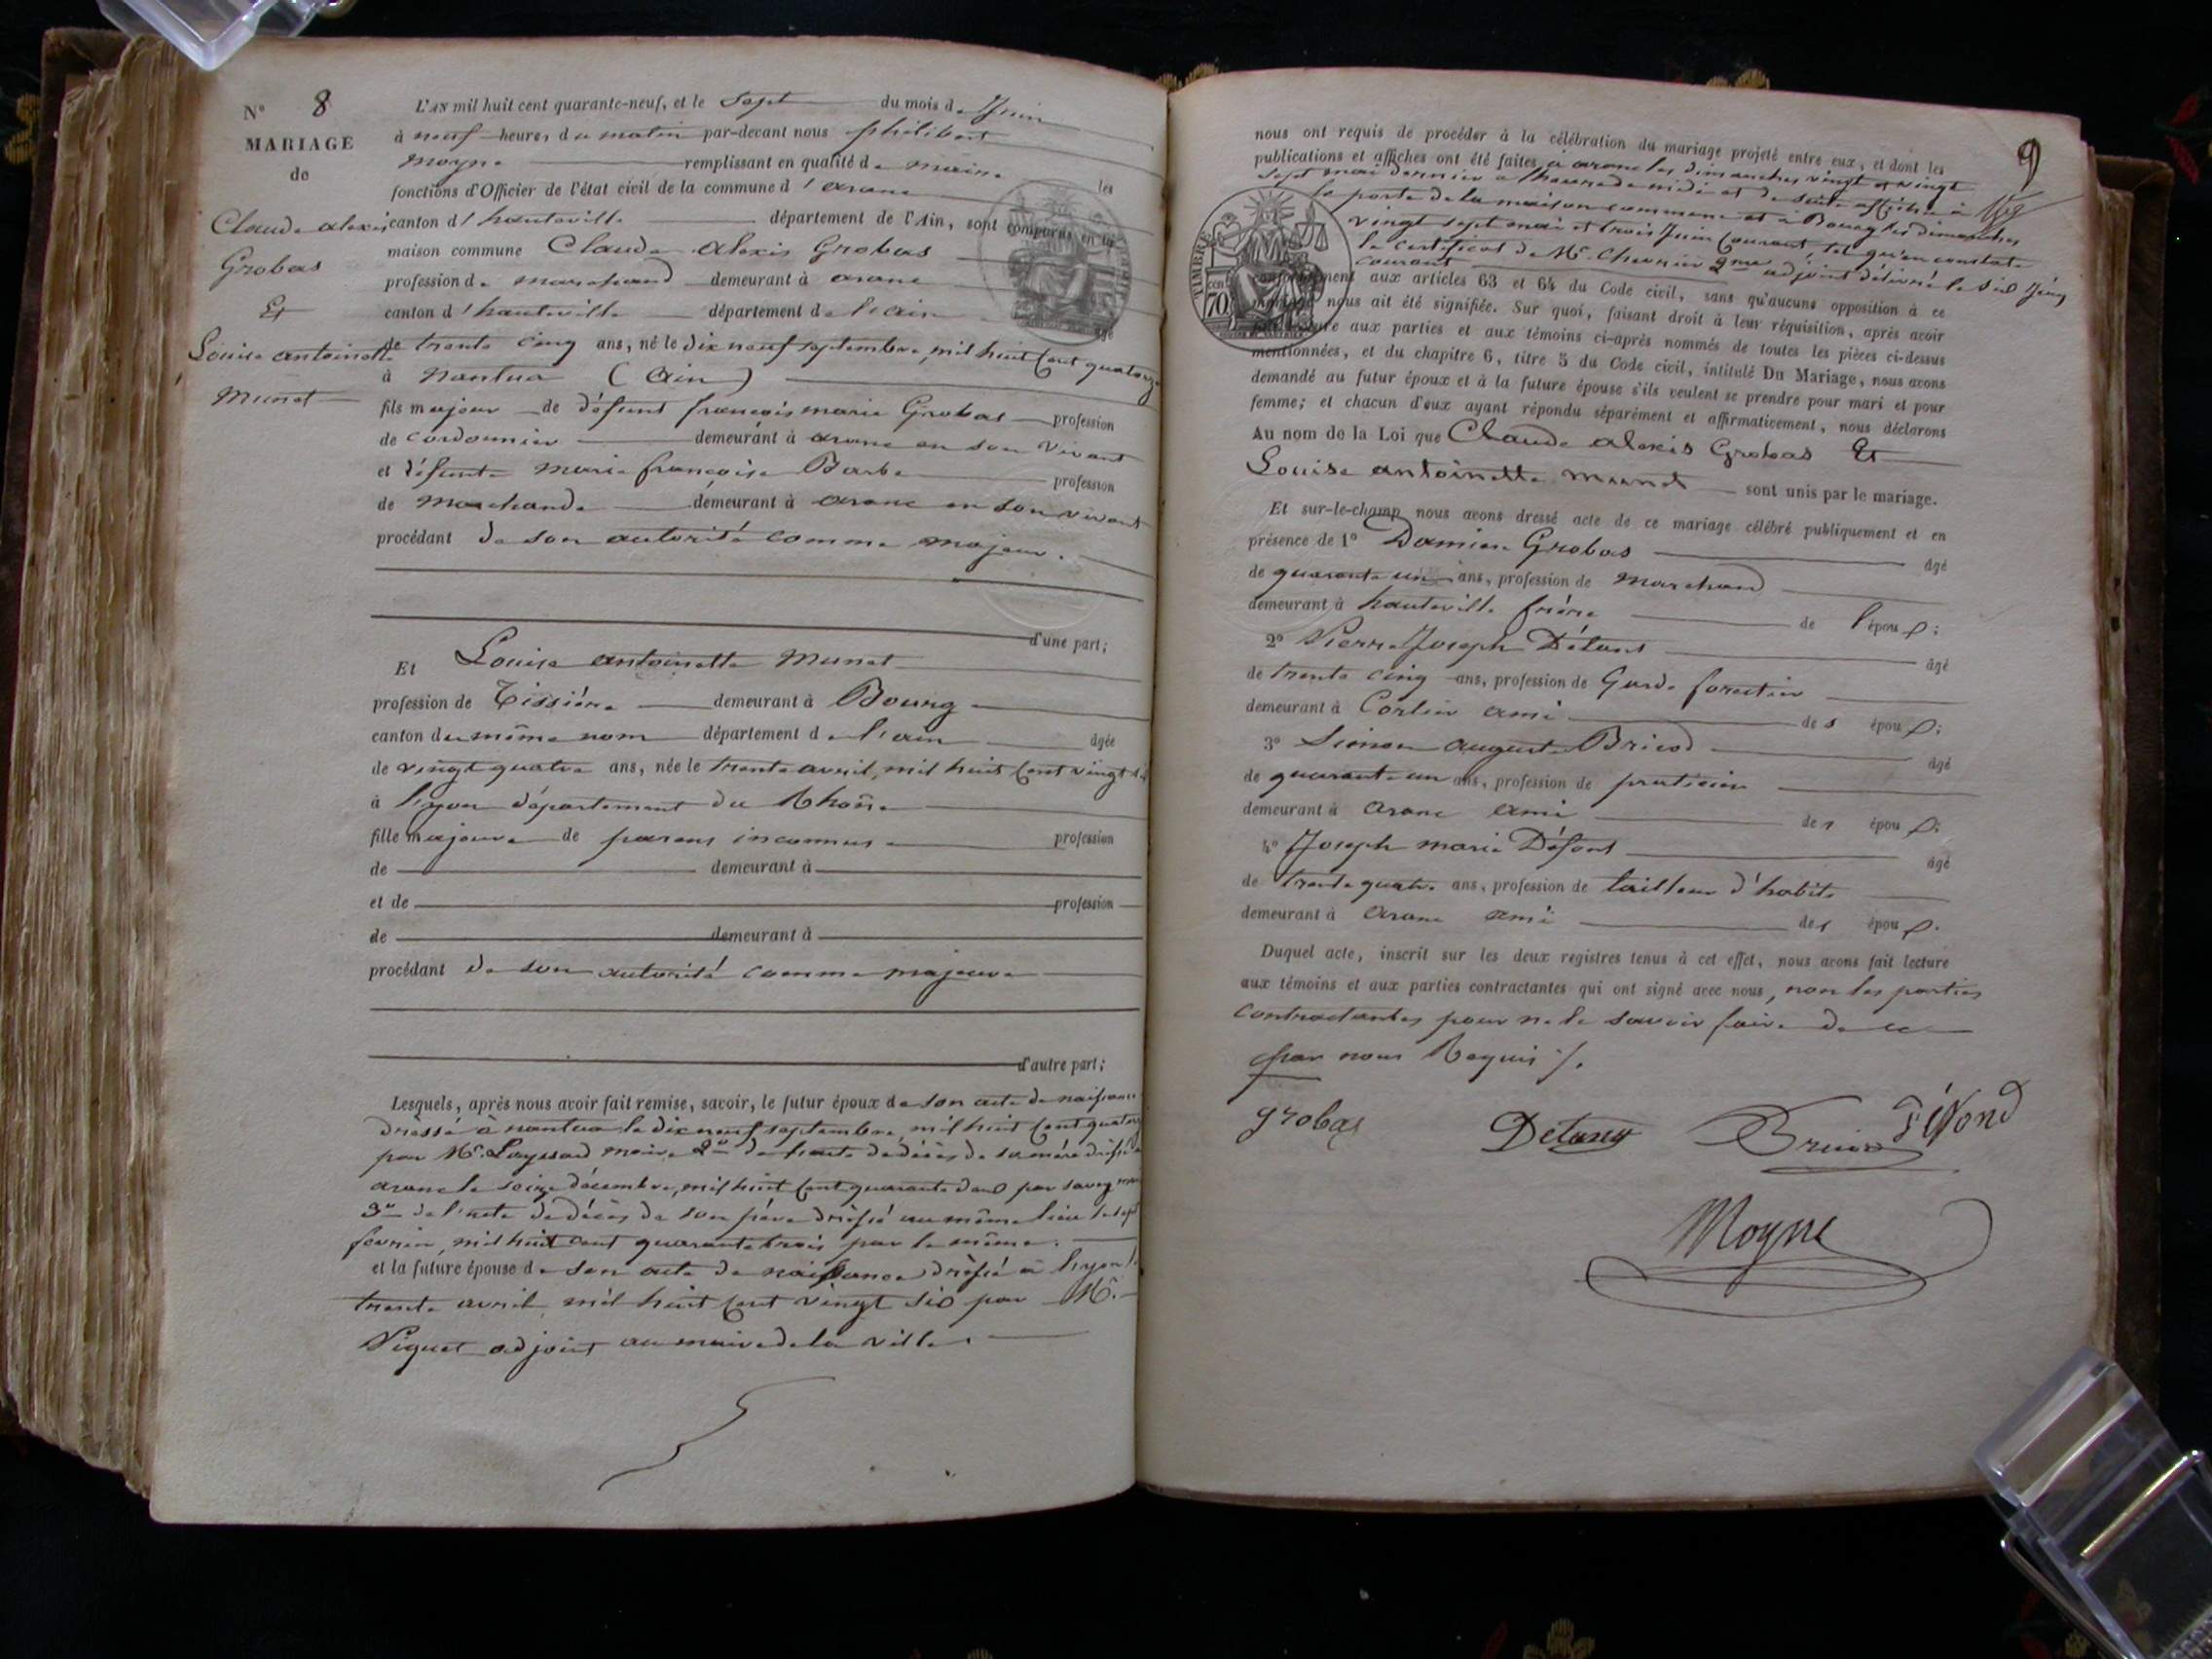 N° 8
MARIAGE
de
Claude alexis
Grobas
Et
Louise antoinette
Munet
L'AN mil huit cent quarante-neuf, et le Sept du mois de Juin
à neuf heures du matin par-devant nous philibert
Moyne remplissant en qualité de maire les
fonctions d'Officier de l'état civil de la commune d'aranc
canton d'hauteville département de l'Ain, sont comparus en la
maison commune Claude Alexis Grobas
profession de marchand demeurant à aranc
canton d'hauteville département de l'ain âgé
de trente cinq ans, né le dix neuf septembre mil huit cent quatorze
à Nantua (Ain)
fils majeur de défunt françois marie Grobas profession
de cordonnier demeurant à aranc en son vivant
et défunte marie françoise Barbe profession
de Marchande demeurant à aranc en son vivant
procédant de son autorité comme majeur.
d'une part;
Et Louise antoinette Munet
profession de Tissière demeurant à Bourg
canton du même nom département de l'ain âgée
de vingt quatre ans, née le trente avril, mil huit cent vingt
à lyon département du Rhône
fille majeure de parens inconnus profession
de demeurant à
et de profession
de demeurant à
procédant de son autorité comme majeure
d'autre part;
Lesquels, après nous avoir fait remise, savoir, le futur époux de son acte de naissance
dressé à nantua le dix neuf septembre mil huit cent quatorze
par Mr. maire 2° de l'acte de décès de sa mère dressé à
aranc le seize décembre, mil huit cent quarante deux par
3° de l'acte de décès de son père dressé au même lieu le sept
février, mil huit cent quarante trois par le même.
et la future épouse de son acte de naissance dressé à lyon le
trente avril mil huit cent vingt six par Mr.
Piquet adjoint au maire de la ville.
9
nous ont requis de procéder à la célébration du mariage projeté entre eux, et dont les
publications et affiches ont été faites à aranc les dimanches vingt et vingt
sept mai dernier à l'heure de midi et de suite affiché à
la porte de la maison commune et à Bourg les dimanches
vingt sept mai et trois Juin courant, tel qu'en constate
le certificat de Mr. Chevrier 2me adjoint délivré le six Juin
courant
conformément aux articles 63 et 64 du Code civil, sans qu'aucune opposition à ce
mariage nous ait été signifiée. Sur quoi, faisant droit à leur réquisition, après avoir
lecture aux parties et aux témoins ci-après nommés de toutes les pièces ci-dessus
mentionnées, et du chapitre 6, titre 5 du Code civil, intitulé Du Mariage, nous avons
demandé au futur époux et à la future épouse s'ils veulent se prendre pour mari et pour
femme; et chacun d'eux ayant répondu séparément et affirmativement, nous déclarons
Au nom de la Loi que Claude alexis Grobas Et
Louise antoinette munet sont unis par le mariage.
Et sur-le-champ nous avons dressé acte de ce mariage célébré publiquement et en
présence de 1° Damien Grobas âgé
de quarante un ans, profession de marchand
demeurant à hauteville frère de l'époux;
2° Pierre Joseph Délans âgé
de trente cinq ans, profession de Garde forestier
demeurant à Corlier ami des époux;
3° Simon auguste Bricod âgé
de quarante un ans, profession de praticien
demeurant à aranc ami des époux;
4° Joseph marie Défond âgé
de trente quatre ans, profession de tailleur d'habits
demeurant à aranc ami des époux.
Duquel acte, inscrit sur les deux registres tenus à cet effet, nous avons fait lecture
aux témoins et aux parties contractantes qui ont signé avec nous, non les parties
contractantes pour ne le savoir faire de ce
par nous Requis /.
grobas
Moyne
TIMBRE
70